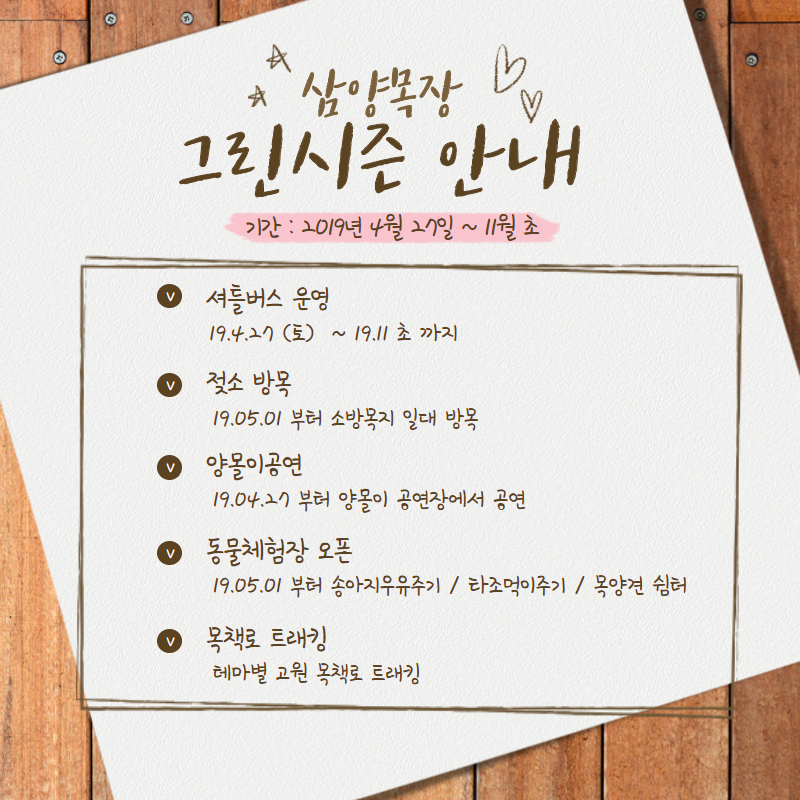 삼양목장
그린시즌 안내
기간 : 2019년 4월 27일 ~ 11월 초
v 셔틀버스 운영
19.4.27 (토) ~ 19.11 초 까지
v 젖소 방목
19.05.01 부터 소방목지 일대 방목
v 양몰이공연
19.04.27 부터 양몰이 공연장에서 공연
v 동물체험장 오픈
19.05.01 부터 송아지우유주기 / 타조먹이주기 / 목양견 쉼터
v 목책로 트래킹
테마별 고원 목책로 트래킹